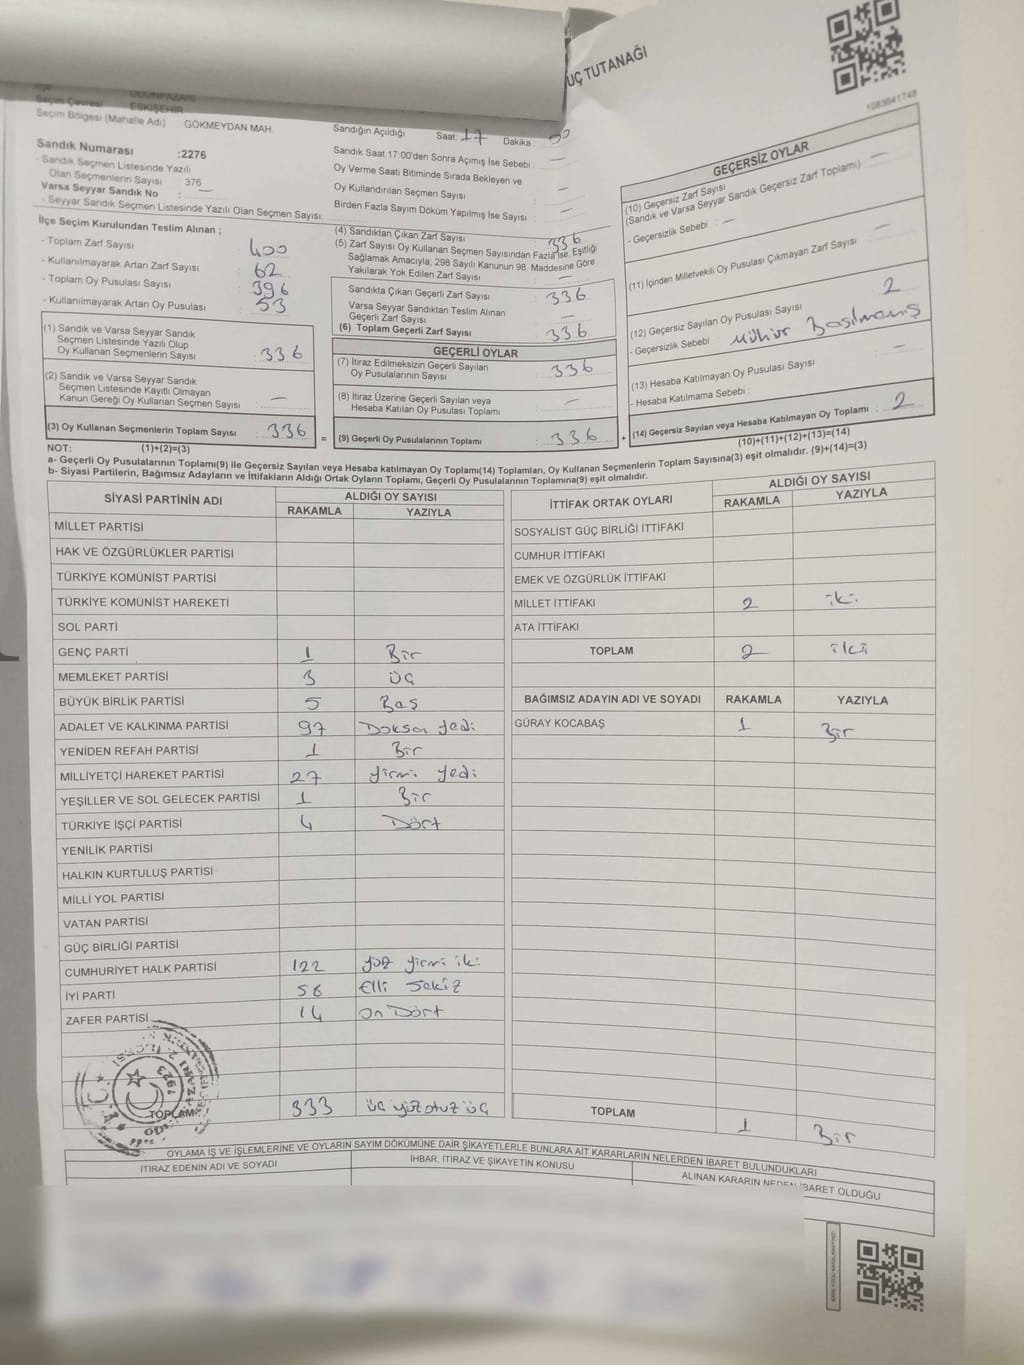 UÇ TUTANAĞI
1083641748
ODUNPAZARI
Seçim Çevresi ESKİŞEHİR
Seçim Bölgesi (Mahalle Adı) : GÖKMEYDAN MAH.
Sandık Numarası :2276
- Sandık Seçmen Listesinde Yazılı
Olan Seçmenlerin Sayısı : 376
Varsa Seyyar Sandık No : —
- Seyyar Sandık Seçmen Listesinde Yazılı Olan Seçmen Sayısı:
Sandığın Açıldığı Saat: 17 Dakika : 00
Sandık Saat 17:00'den Sonra Açımış İse Sebebi : —
Oy Verme Saati Bitiminde Sırada Bekleyen ve
Oy Kullandırılan Seçmen Sayısı : —
Birden Fazla Sayım Döküm Yapılmış İse Sayısı : —
İlçe Seçim Kurulundan Teslim Alınan ;
- Toplam Zarf Sayısı : 400
- Kullanılmayarak Artan Zarf Sayısı : 62
- Toplam Oy Pusulası Sayısı : 396
- Kullanılmayarak Artan Oy Pusulası : 53
(1) Sandık ve Varsa Seyyar Sandık
Seçmen Listesinde Yazılı Olup
Oy Kullanan Seçmenlerin Sayısı : 336
(2) Sandık ve Varsa Seyyar Sandık
Seçmen Listesinde Kayıtlı Olmayan
Kanun Gereği Oy Kullanan Seçmen Sayısı : —
(3) Oy Kullanan Seçmenlerin Toplam Sayısı : 336 =
(4) Sandıktan Çıkan Zarf Sayısı : 336
(5) Zarf Sayısı Oy Kullanan Seçmen Sayısından Fazla ise, Eşitliği
Sağlamak Amacıyla; 298 Sayılı Kanunun 98. Maddesine Göre
Yakılarak Yok Edilen Zarf Sayısı : —
Sandıkta Çıkan Geçerli Zarf Sayısı : 336
Varsa Seyyar Sandıktan Teslim Alınan
Geçerli Zarf Sayısı : —
(6) Toplam Geçerli Zarf Sayısı : 336
GEÇERLİ OYLAR
(7) İtiraz Edilmeksizin Geçerli Sayılan
Oy Pusulalarının Sayısı : 336
(8) İtiraz Üzerine Geçerli Sayılan veya
Hesaba Katılan Oy Pusulası Toplamı : —
(9) Geçerli Oy Pusulalarının Toplamı : 336 +
GEÇERSİZ OYLAR
(10) Geçersiz Zarf Sayısı : —
(Sandık ve Varsa Seyyar Sandık Geçersiz Zarf Toplamı)
- Geçersizlik Sebebi : —
(11) İçinden Milletvekili Oy Pusulası Çıkmayan Zarf Sayısı : —
(12) Geçersiz Sayılan Oy Pusulası Sayısı : 2
- Geçersizlik Sebebi : Mühür Basılmamış
(13) Hesaba Katılmayan Oy Pusulası Sayısı : —
- Hesaba Katılmama Sebebi :
(14) Geçersiz Sayılan veya Hesaba Katılmayan Oy Toplamı : 2
NOT: (1)+(2)=(3) (10)+(11)+(12)+(13)=(14)
a- Geçerli Oy Pusulalarının Toplamı(9) ile Geçersiz Sayılan veya Hesaba katılmayan Oy Toplamı(14) Toplamları, Oy Kullanan Seçmenlerin Toplam Sayısına(3) eşit olmalıdır. (9)+(14)=(3)
b- Siyasi Partilerin, Bağımsız Adayların ve İttifakların Aldığı Oyların Toplamı, Geçerli Oy Pusulalarının Toplamına(9) eşit olmalıdır.
SİYASİ PARTİNİN ADI ALDIĞI OY SAYISI
RAKAMLA YAZIYLA
MİLLET PARTİSİ
HAK VE ÖZGÜRLÜKLER PARTİSİ
TÜRKİYE KOMÜNİST PARTİSİ
TÜRKİYE KOMÜNİST HAREKETİ
SOL PARTİ
GENÇ PARTİ 1 Bir
MEMLEKET PARTİSİ 3 üç
BÜYÜK BİRLİK PARTİSİ 5 Beş
ADALET VE KALKINMA PARTİSİ 97 Doksan yedi
YENİDEN REFAH PARTİSİ 1 Bir
MİLLİYETÇİ HAREKET PARTİSİ 27 yirmi yedi
YEŞİLLER VE SOL GELECEK PARTİSİ 1 Bir
TÜRKİYE İŞÇİ PARTİSİ 4 Dört
YENİLİK PARTİSİ
HALKIN KURTULUŞ PARTİSİ
MİLLİ YOL PARTİSİ
VATAN PARTİSİ
GÜÇ BİRLİĞİ PARTİSİ
CUMHURİYET HALK PARTİSİ 122 yüz yirmi iki
İYİ PARTİ 58 Elli Sekiz
ZAFER PARTİSİ 14 On Dört
TOPLAM 333 üç yüz otuz üç
T.C.
1923
İTTİFAK ORTAK OYLARI ALDIĞI OY SAYISI
RAKAMLA YAZIYLA
SOSYALİST GÜÇ BİRLİĞİ İTTİFAKI
CUMHUR İTTİFAKI
EMEK VE ÖZGÜRLÜK İTTİFAKI
MİLLET İTTİFAKI 2 iki
ATA İTTİFAKI
TOPLAM 2 iki
BAĞIMSIZ ADAYIN ADI VE SOYADI RAKAMLA YAZIYLA
GÜRAY KOCABAŞ 1 Bir
TOPLAM 1 Bir
OYLAMA İŞ VE İŞLEMLERİNE VE OYLARIN SAYIM DÖKÜMÜNE DAİR ŞİKAYETLERLE BUNLARA AİT KARARLARIN NELERDEN İBARET BULUNDUKLARI
İTİRAZ EDENİN ADI VE SOYADI İHBAR, İTİRAZ VE ŞİKAYETİN KONUSU ALINAN KARARIN NEDEN İBARET OLDUĞU